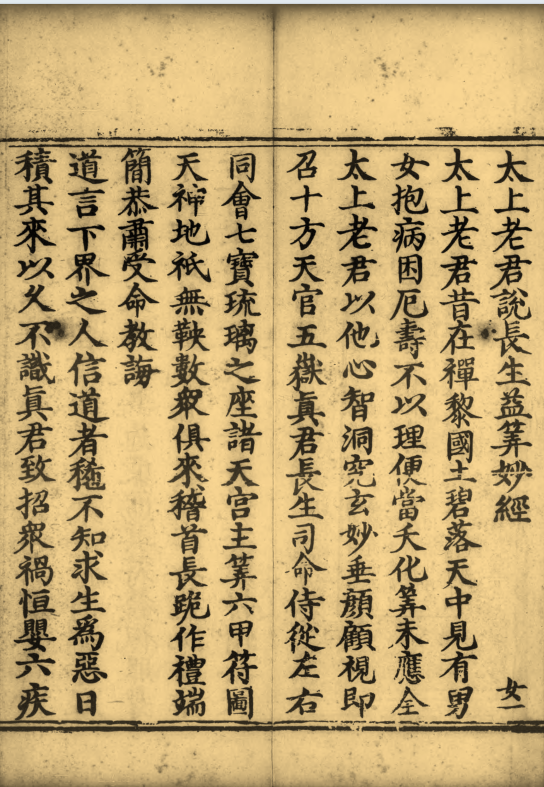 太上老君說長生益筭妙經
女一
太上老君昔在禪黎國土碧落天中見有男
女抱病困厄壽不以理便當夭化筭未應全
太上老君以他心智洞究玄妙垂顔顧視即
召十方天官五嶽眞君長生司命侍從左右
同會七寶琉璃之座諸天宫主筭六甲符圖
天神地祇無鞅數衆俱來稽首長跪作禮端
簡恭肅受命教誨
道言下界之人信道者稀不知求生爲惡日
積其來以久不識眞君致招衆禍恒嬰六疾